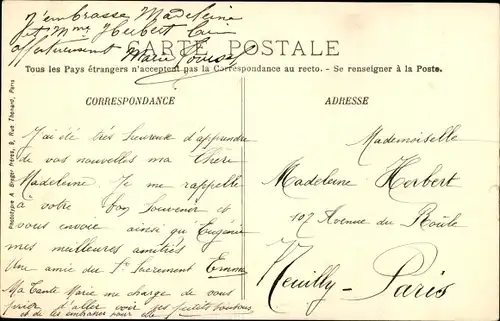 J'embrasse Madeleine
et Mme Herbert
affectueusement Marie Louise
CARTE POSTALE
Tous les Pays étrangers n'acceptent pas la Correspondance au recto. - Se renseigner à la Poste.
CORRESPONDANCE
ADRESSE
Phototypie A. Breger Frères, 9, Rue Thénard, Paris
J'ai été très heureuse d'apprendre
de vos nouvelles ma Chère
Madeleine. Je me rappelle
à votre bon Souvenir et
vous envoie ainsi qu'Eugénie
mes meilleures amitiés
Une amie du St Sacrement Emma
Ma Tante Marie me charge de vous
prier d'aller voir ses petits
et de les embrasser pour elle
Mademoiselle
Madeleine Herbert
107 Avenue du Roûle
Neuilly-Paris